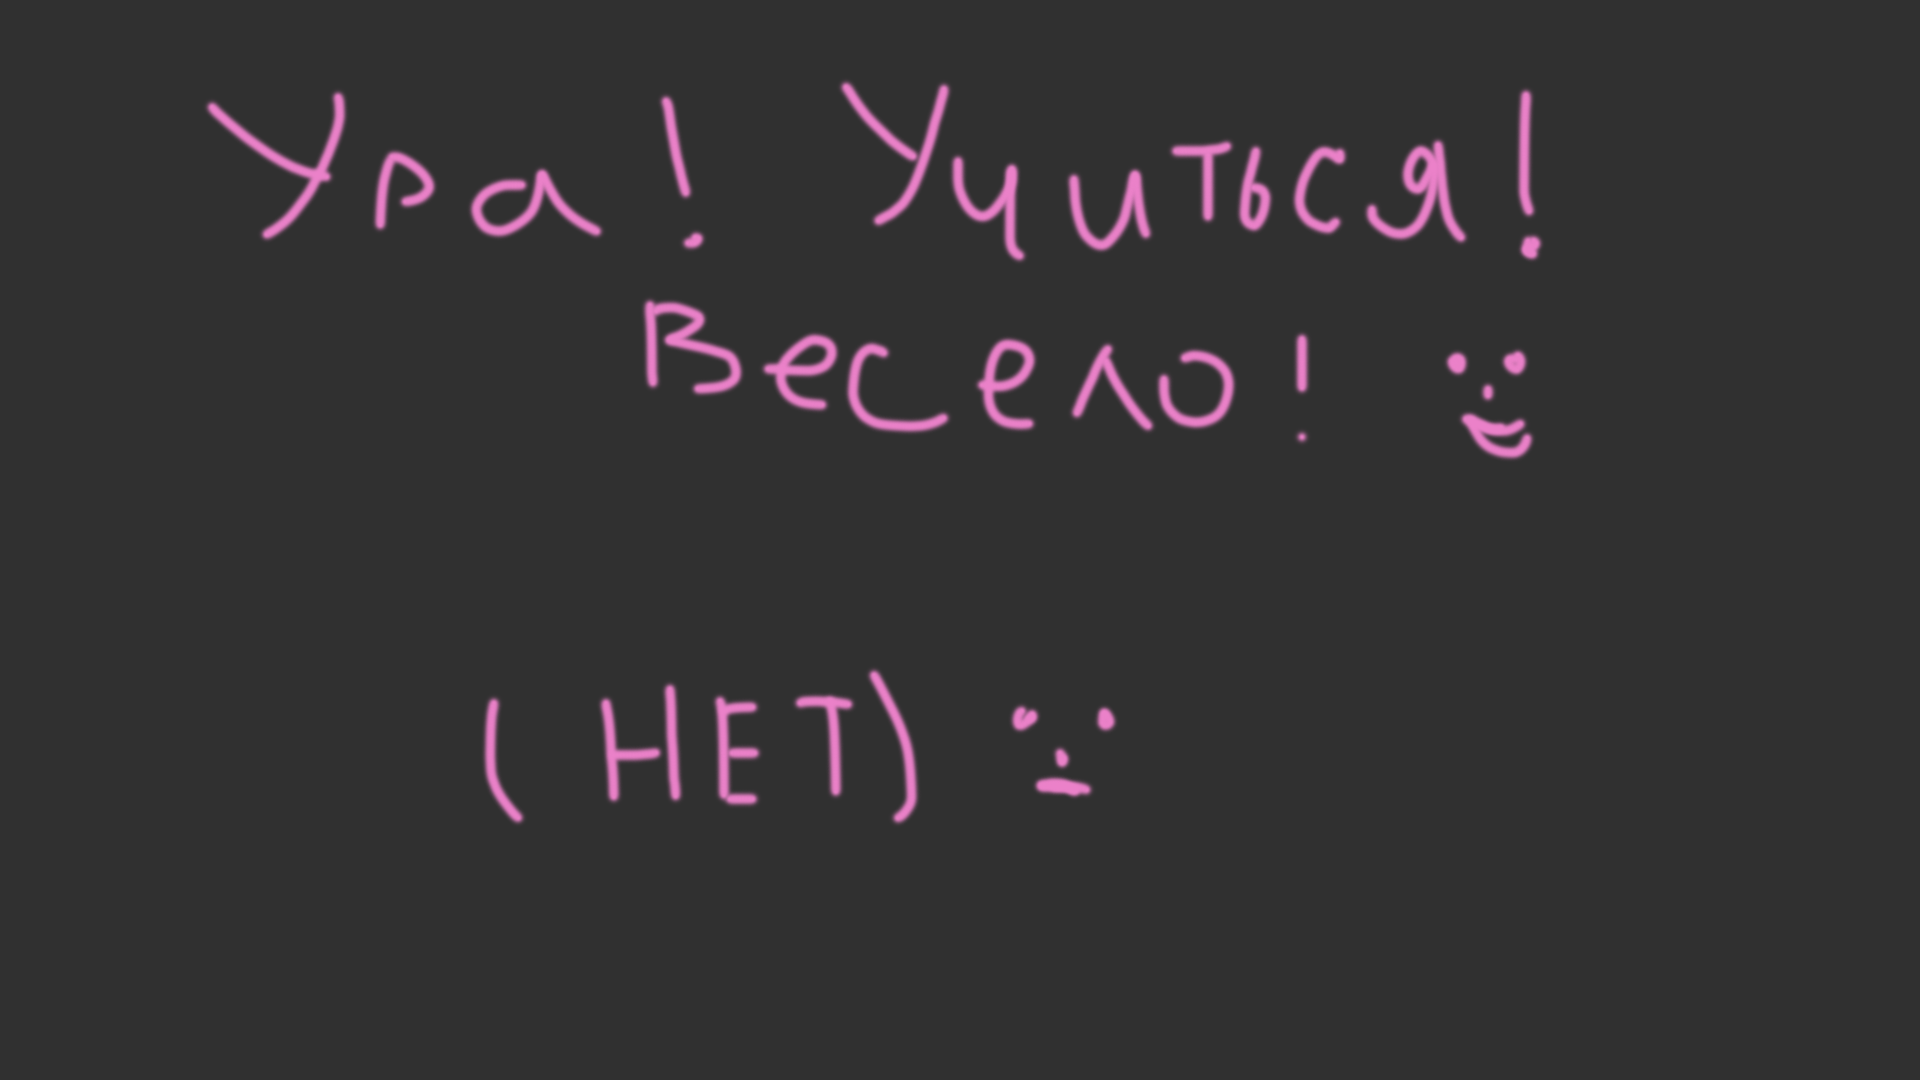 Ура! Учиться!
Весело!
(НЕТ)